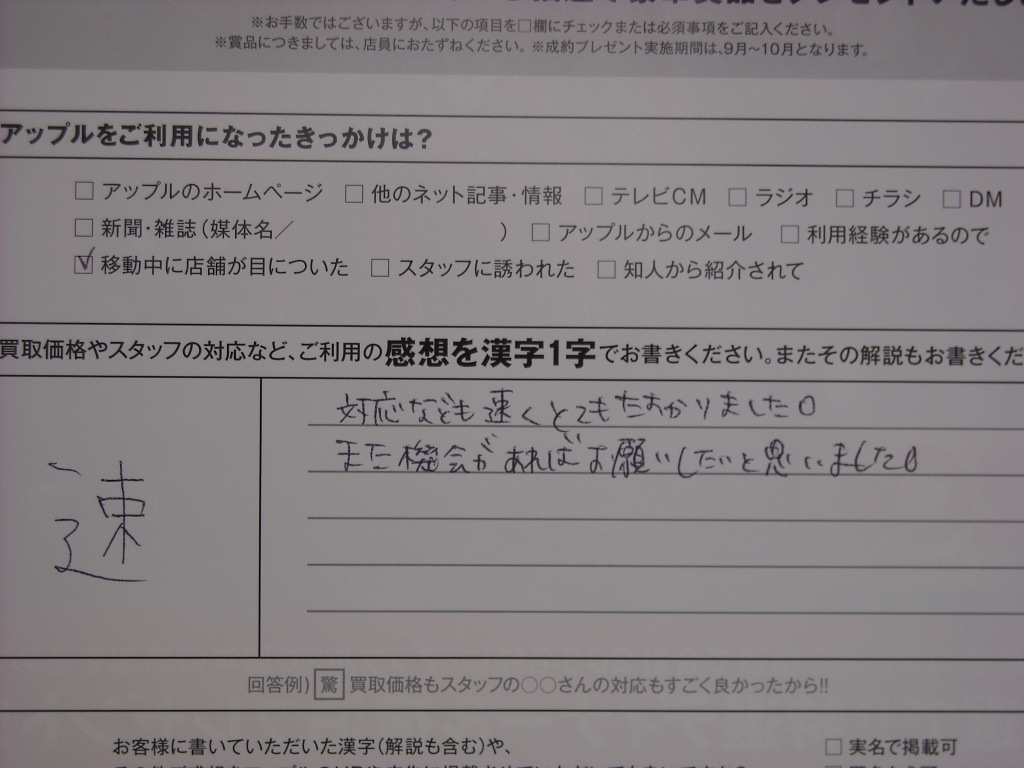 ※お手数ではございますが、以下の項目を□欄にチェックまたは必須事項をご記入ください。
※賞品につきましては、店員におたずねください。※成約プレゼント実施期間は、9月〜10月となります。
アップルをご利用になったきっかけは?
□ アップルのホームページ □ 他のネット記事・情報 □ テレビCM □ ラジオ □ チラシ □ DM
□ 新聞・雑誌(媒体名/ ) □ アップルからのメール □ 利用経験があるので
☑ 移動中に店舗が目についた □ スタッフに誘われた □ 知人から紹介されて
買取価格やスタッフの対応など、ご利用の感想を漢字1字でお書きください。またその解説もお書きくだ
速
対応なども速くとてもたすかりました。
また機会があればお願いしたいと思いました。
回答例) 驚 買取価格もスタッフの○○さんの対応もすごく良かったから!!
お客様に書いていただいた漢字(解説も含む)や、
□ 実名で掲載可